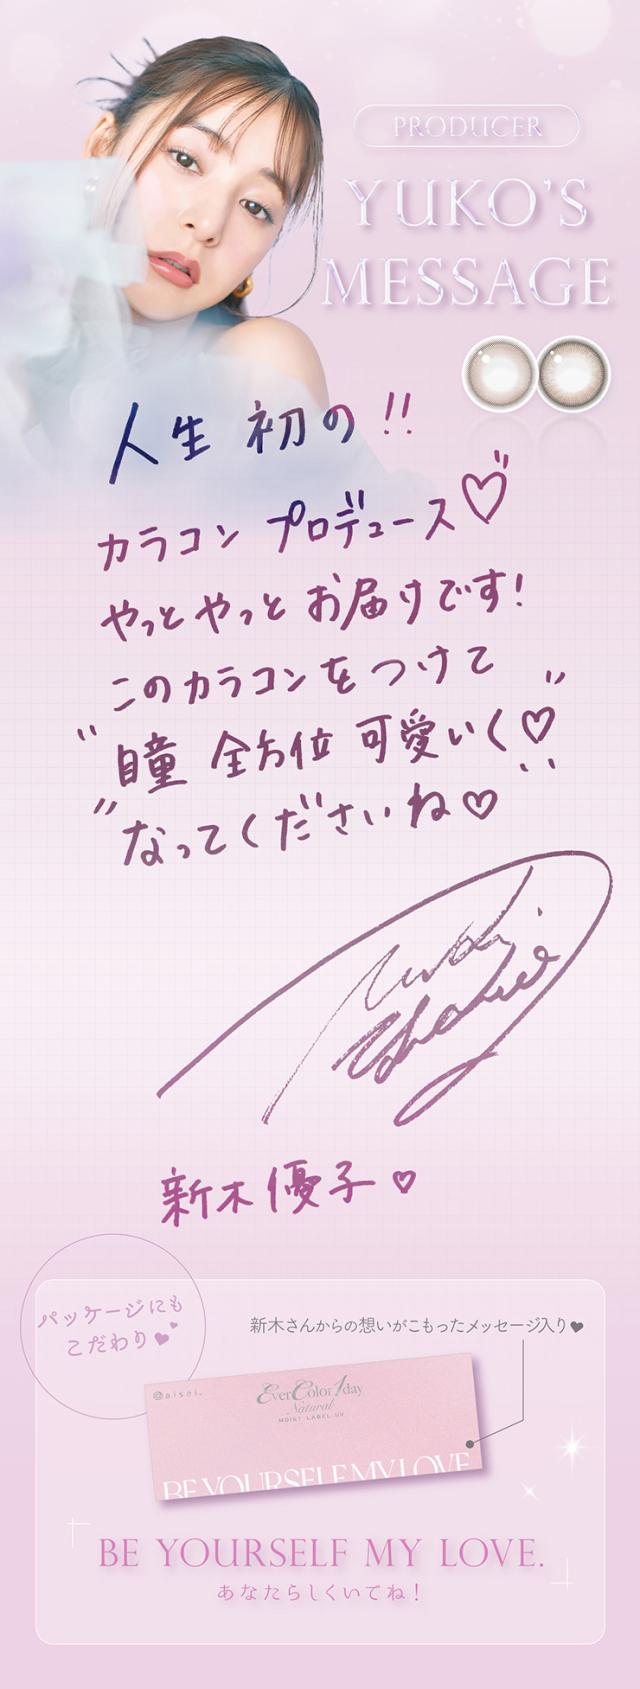 PRODUCER
YUKO'S
MESSAGE
人生 初の!!
カラコン プロデュース♡
やっとやっと お届けです!
このカラコンを つけて
"瞳 全方位 可愛いく♡"
なってくださいね♡
新木優子♡
パッケージにも
こだわり♥
新木さんからの想いがこもったメッセージ入り♥
@aisei_
EverColor1day
Natural
MOIST LABEL UV
BE YOURSELF MY LOVE.
BE YOURSELF MY LOVE.
あなたらしくいてね!